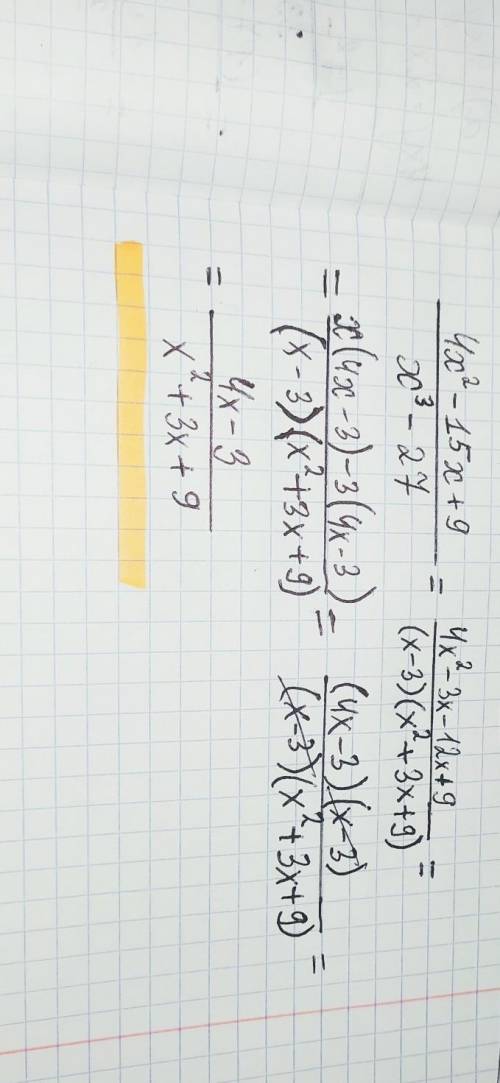 (4x² - 15x + 9)/(x³ - 27) = (4x² - 3x - 12x + 9)/((x - 3)(x² + 3x + 9)) =
= (x(4x - 3) - 3(4x - 3))/((x - 3)(x² + 3x + 9)) = ((4x - 3)(x - 3))/((x - 3)(x² + 3x + 9)) =
= (4x - 3)/(x² + 3x + 9)